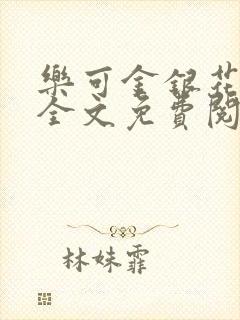 樂可金銀花
全文免費閱
林妹霏